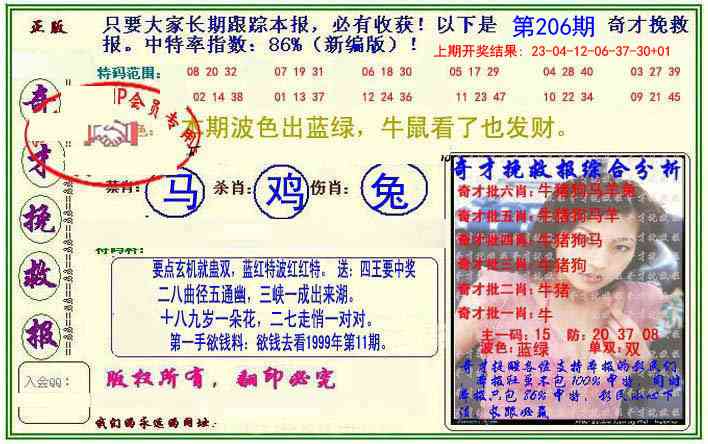 正版
只要大家长期跟踪本报，必有收获！以下是 第206期 奇才挽救
报。中特率指数：86%（新编版）！
上期开奖结果：23-04-12-06-37-30+01
特码范围：
08 20 32 07 19 31 06 18 30 05 17 29 04 28 40 03 27 39
02 14 38 01 13 37 12 24 36 11 23 47 10 22 34 09 21 45
P会员专用
本期波色出蓝绿，牛鼠看了也发财。
奇才挽救报
禁肖：马 杀肖：鸡 伤肖：兔
要点玄机就蛊双，蓝红特波红红特。 送：四王要中奖
二八曲径五通幽，三峡一成出来湖。
十八九岁一朵花，二七走悄一对对。
第一手欲钱料：欲钱去看1999年第11期。
入会QQ：
版权所有，翻印必究
我们的永远的网址：
奇才挽救报综合分析
奇才批六肖：牛猪狗马羊兔
奇才批五肖：牛猪狗马羊
奇才批四肖：牛猪狗马
奇才批三肖：牛猪狗
奇才批二肖：牛猪
奇才批一肖：牛
主一码：15 防：20 37 08
波色：蓝绿 单双：双
奇才提醒各位支持本报的彩民们
本报狂虽不包100%中特，但对
本报只包86%中特，彩民小心下
注，长跟必赢